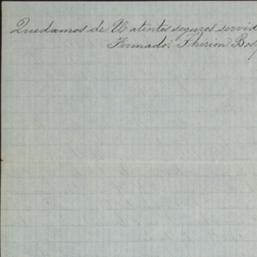 Quedamos de U atentos seguros servid
Firmado: Therion Bos